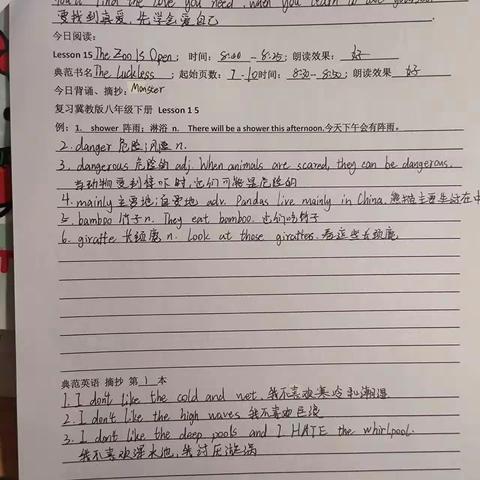 You'll find the love you need, when you learn to love yourself.
要找到真爱,先学会爱自己
今日阅读:
Lesson 15 The Zoo Is Open; 时间: 8:00 - 8:25; 朗读效果: 好
典范书名 The Luckless; 起始页数: 7-10 时间: 8:30-8:50; 朗读效果 好
今日背诵、摘抄: Monster
复习冀教版八年级下册 Lesson 1 5
例: 1. shower 阵雨; 淋浴 n. There will be a shower this afternoon.今天下午会有阵雨。
2. danger 危险;风险 n.
3. dangerous 危险的 adj. When animals are scared, they can be dangerous.
当动物受到惊吓时,它们可能是危险的
4. mainly 主要地; adv. Pandas live mainly in China. 熊猫主要生活在中
5. bamboo 竹子 n. They eat bamboo. 它们吃竹子
6. giraffe 长颈鹿 n. Look at those giraffes. 看这些长颈鹿
典范英语 摘抄 第 1 本
1. I don't like the cold and wet. 我不喜欢寒冷和潮湿
2. I don't like the high waves 我不喜欢巨浪
3. I don't like the deep pools and I HATE the whirlpool.
我不喜欢深水池,我讨厌漩涡